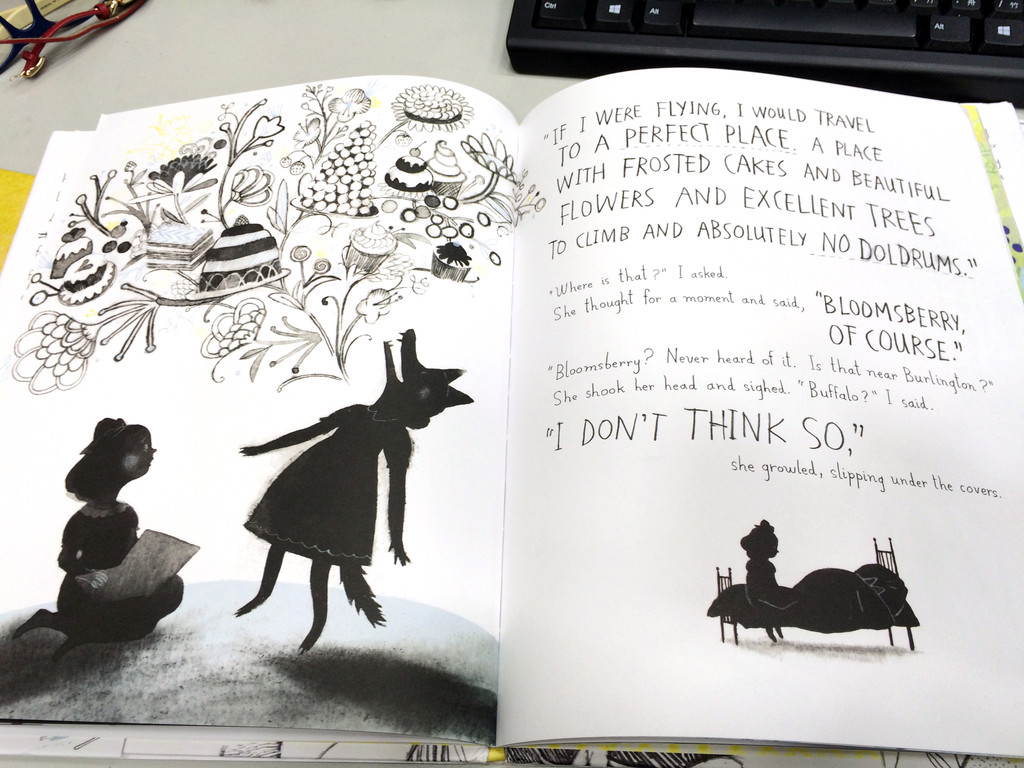 Ctrl
Alt
Alt
"IF I WERE FLYING, I WOULD TRAVEL
TO A PERFECT PLACE. A PLACE
WITH FROSTED CAKES AND BEAUTIFUL
FLOWERS AND EXCELLENT TREES
TO CLIMB AND ABSOLUTELY NO DOLDRUMS."
"Where is that?" I asked.
She thought for a moment and said, "BLOOMSBERRY,
OF COURSE."
"Bloomsberry? Never heard of it. Is that near Burlington?"
She shook her head and sighed. "Buffalo?" I said.
"I DON'T THINK SO,"
she growled, slipping under the covers.